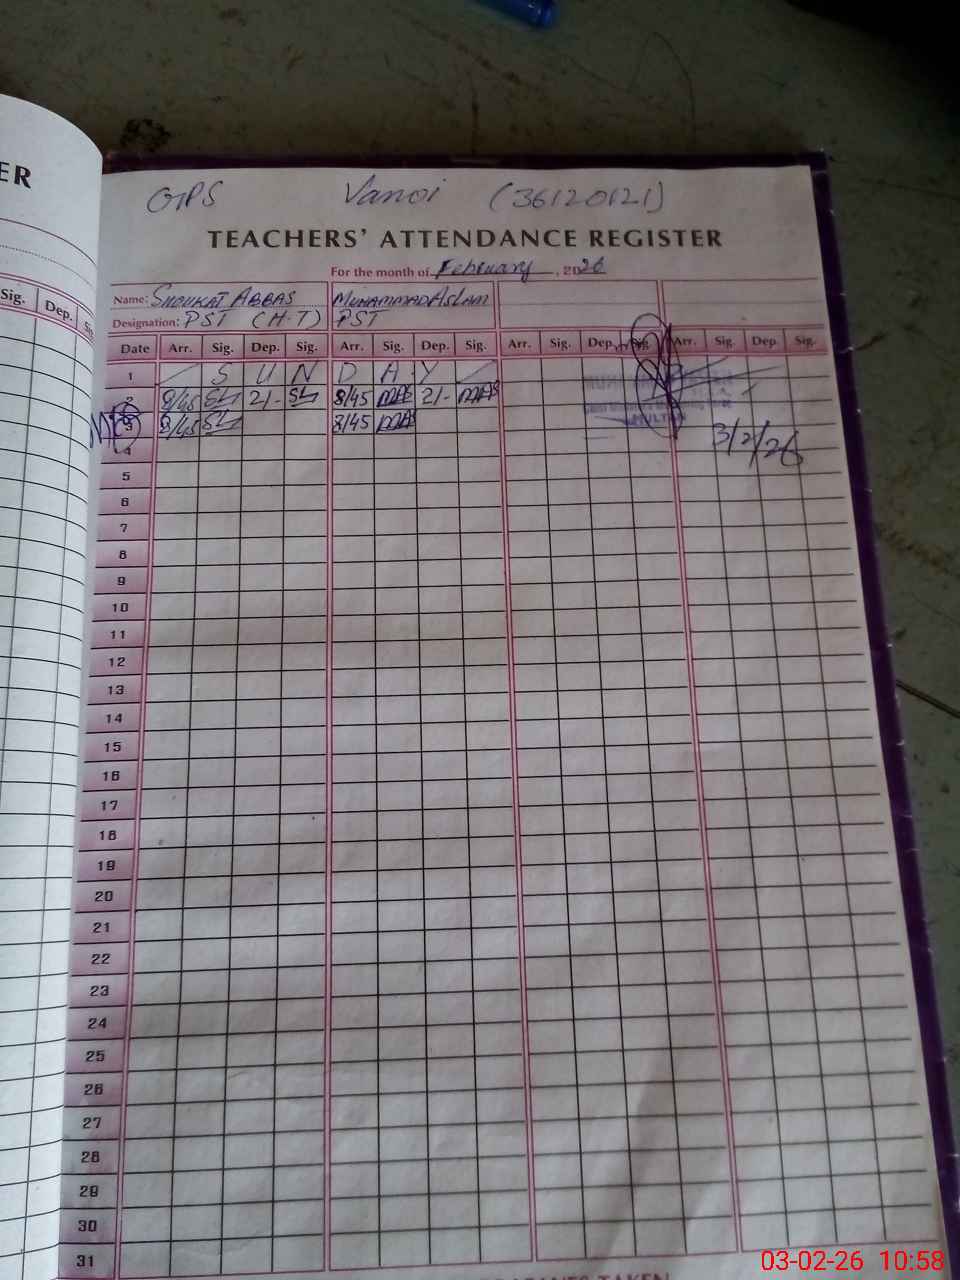 ER
GPS Vanoi (36120121)
TEACHERS' ATTENDANCE REGISTER
For the month of February, 2026
Name: SHOUKAT ABBAS MUHAMMAD ASLAM
Designation: PST (H-T) PST
Sig. Dep.
Date Arr. Sig. Dep. Sig. Arr. Sig. Dep. Sig. Arr. Sig. Dep. Sig. Arr. Sig. Dep. Sig.
1 S U N D A Y
2 8/45 2/- 8/45 2/-
3 8/45 8/45
MULTAN
3/2/26
4
5
6
7
8
9
10
11
12
13
14
15
16
17
18
19
20
21
22
23
24
25
26
27
28
29
30
31
03-02-26 10:58